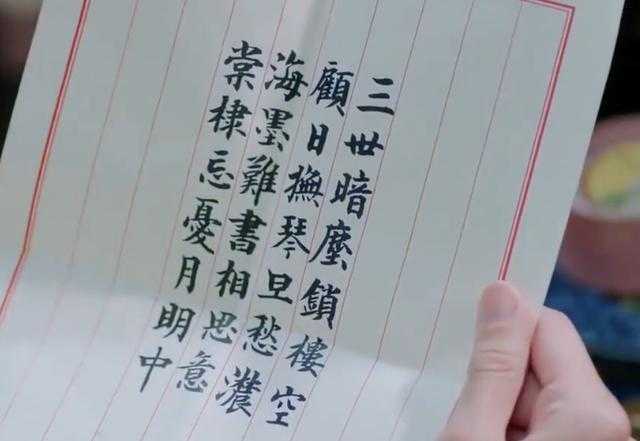 三世暗塵鎖樓空
顧日撫琴旦愁濃
海墨難書相思意
棠棣忘憂月明中